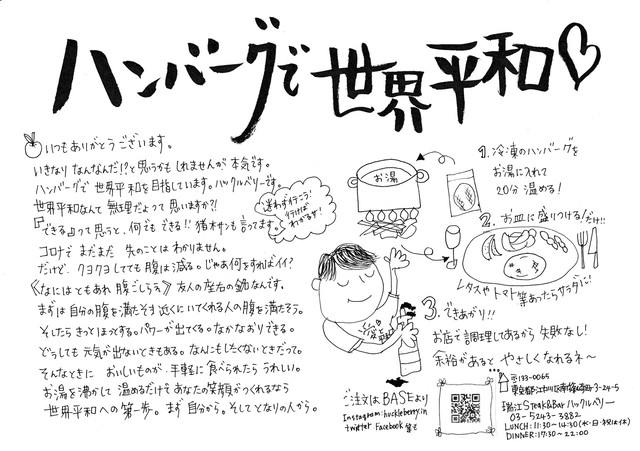 ハンバーグで世界平和♡
いつもありがとうございます。
いきなりなんなんだ!?と思うかもしれませんが本気です。
ハンバーグで世界平和を目指しています。ハックルベリーです。
世界平和なんて無理だよって思いますか?!
『できるって思うと、何でもできる!!猪木サンも言ってます。
コロナでまだまだ先のことはわかりません。
だけど、クヨクヨしてても腹は減る。じゃあ何をすればイイ?
《なにはともあれ腹ごしらえ》友人の座右の銘なんです。
まずは自分の腹を満たそう近くにいてくれる人の腹を満たそう。
そしたらきっとほっとする。パワーが出てくる。なかなおりできる。
どうしても元気が出ないときもある。なんにもしたくないときだって。
そんなときにおいしいものが、手軽に食べられたらうれしい。
お湯を沸かして温めるだけであなたの笑顔がつくれるなら
世界平和への第一歩。まず自分から。そしてとなりの人から。
迷わずイケこう!
行けば
わかるサ!
お湯
1.冷凍のハンバーグを
お湯に入れて
20分温める!
2.お皿に盛りつける!だけ!!
レタスやトマト等あったらサラダに!
3.できあがり!!
お店で調理してあるから失敗なし!
余裕があるとやさしくなれるネ〜
ご注文はBASEより
Instagram:huckleberry.in
twitter Facebook
〒133-0065
東京都江戸川区南篠崎町3-24-5
瑞江Steak&Barハックルベリー
03-5243-3882
LUNCH:11:30~14:30(水・日・祝は休)
DINNER:17:30~22:00